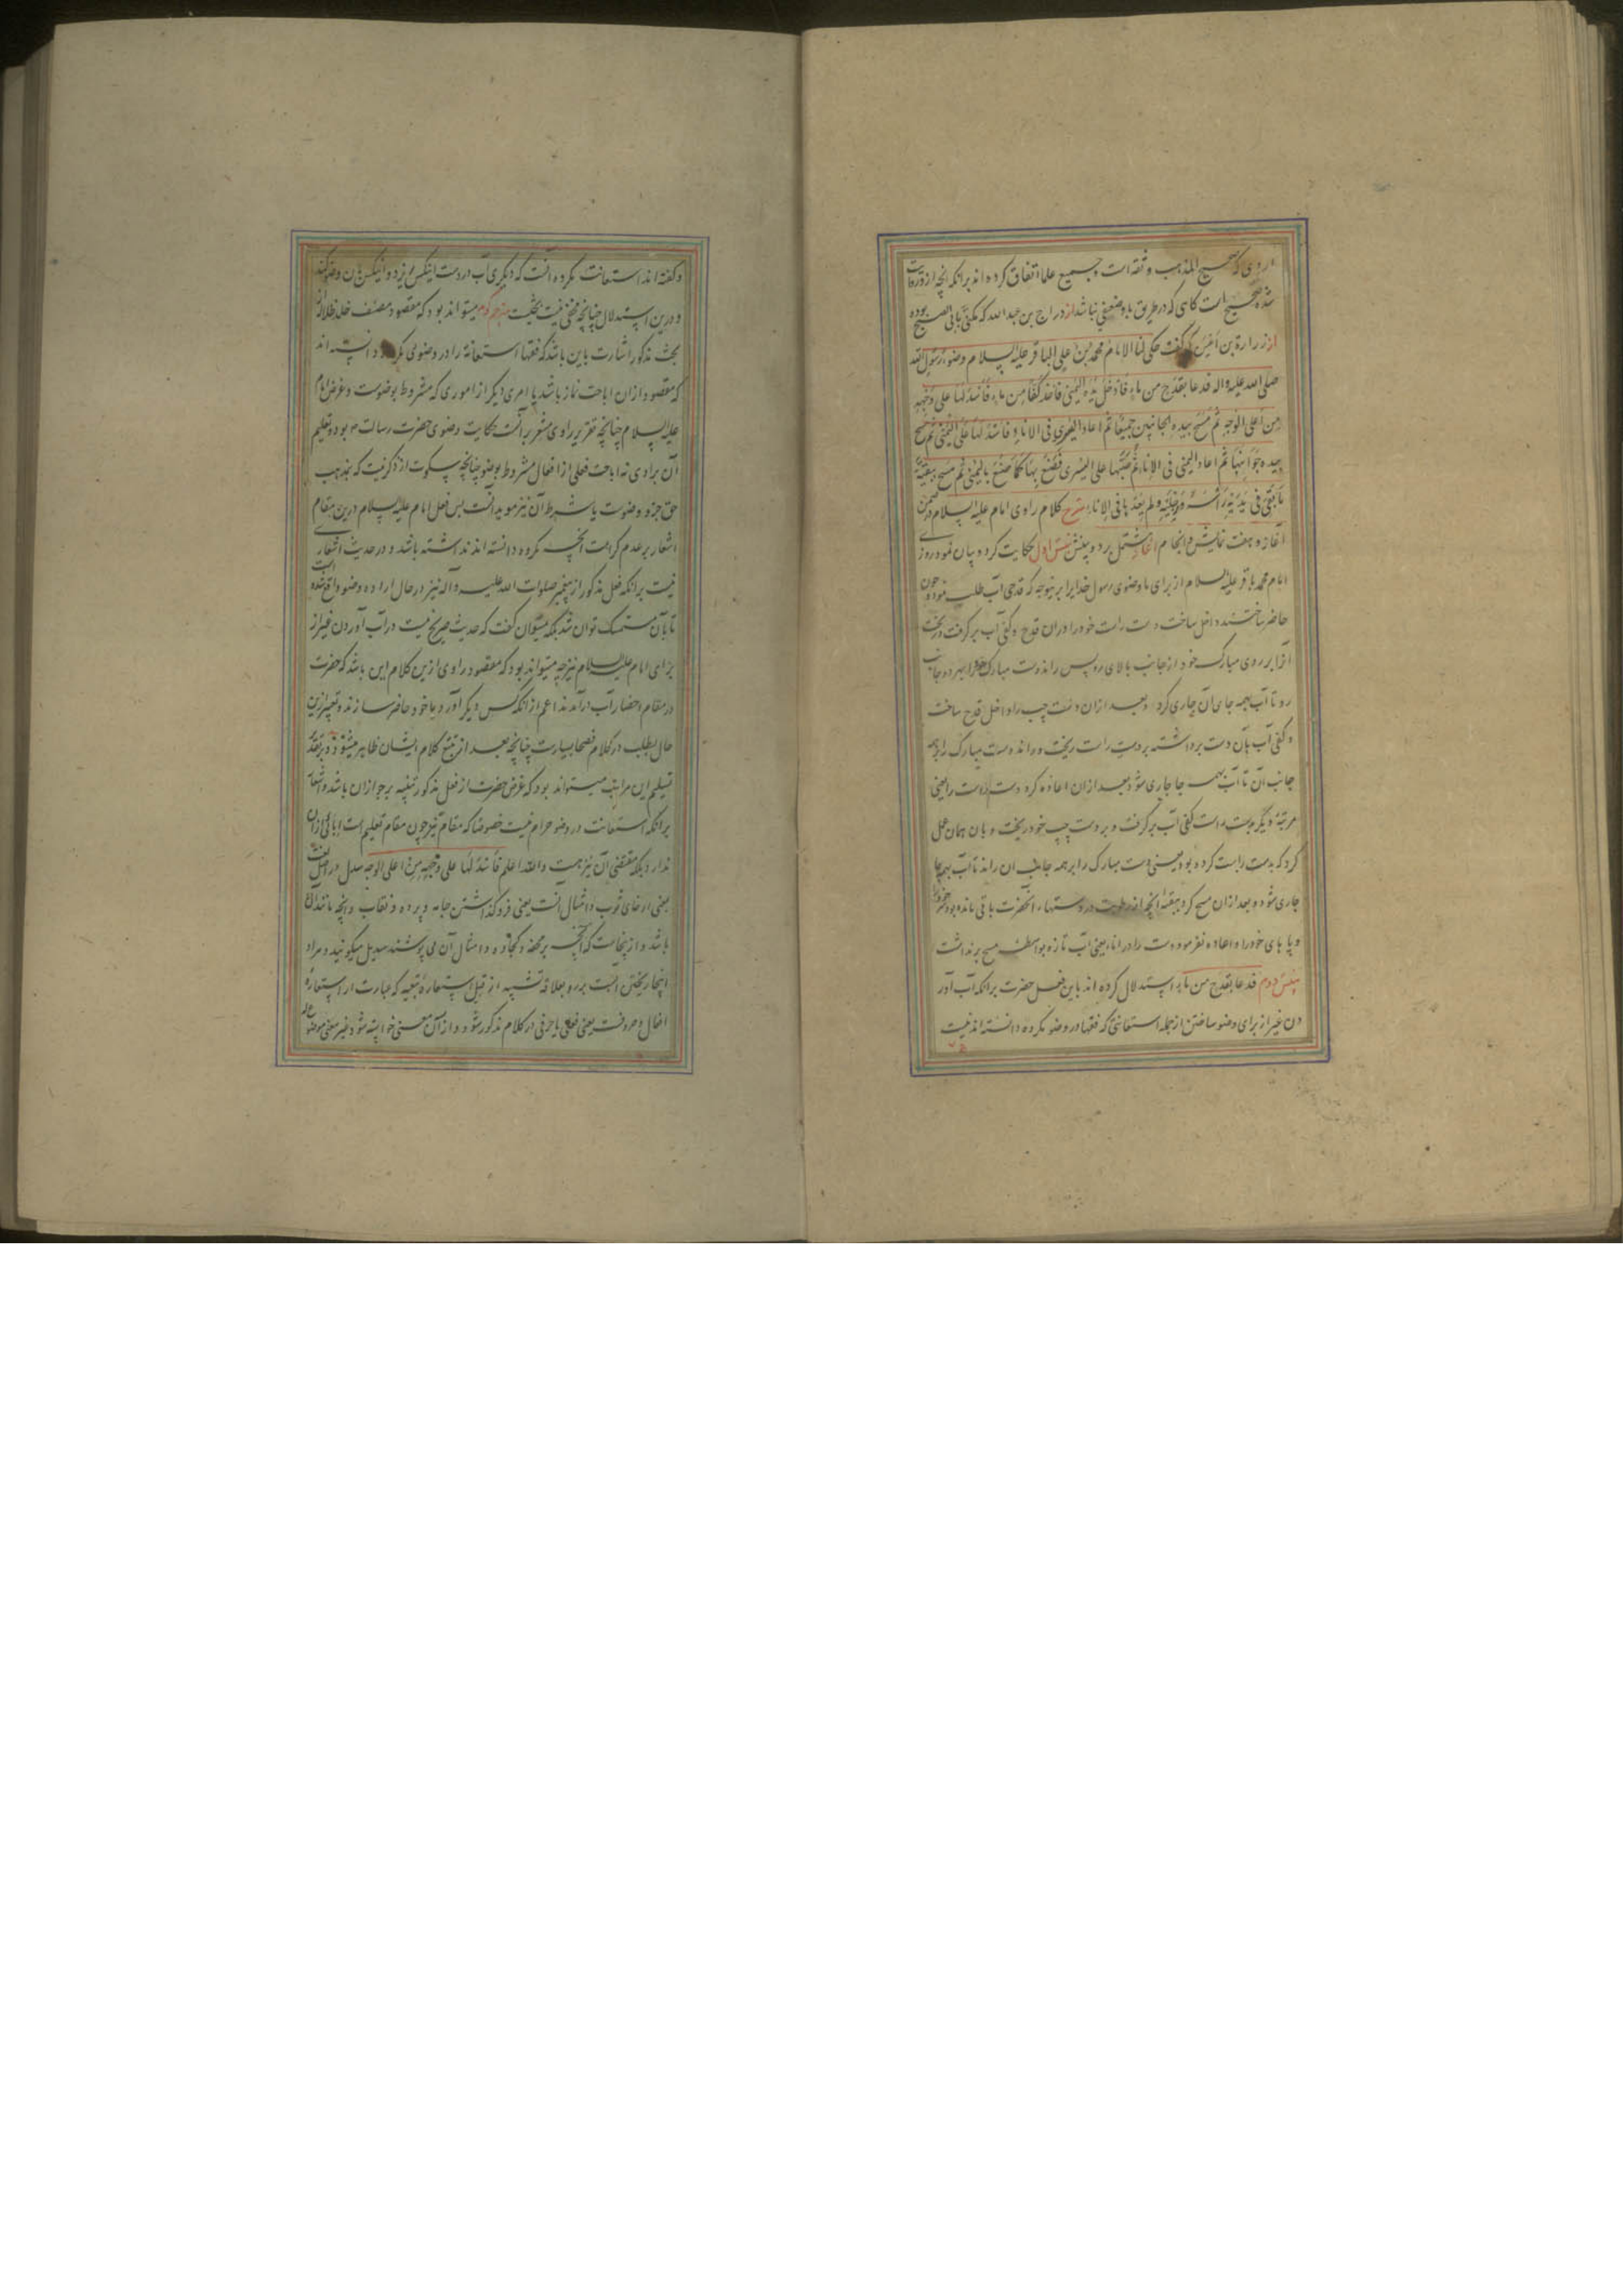 که صحیح المذهب و ثقه است و جمیع علما اتفاق کرده اند برانکه انچه ازو روایت
شده صحیح است کاهی که در طریق باو ضعفی نباشد از دراج بن عبدالله که مکنی بابی الصبیح بوده
از زرارة بن اعین که گفت حکی لنا الامام محمد بن علی الباقر علیه السلام وضوء رسول الله
صلی الله علیه و اله فدعا بقدح من ماء فادخل یده الیمنی فاخذ کفا من ماء فاسدلها علی وجهه
من اعلی الوجه ثم مسح بیده الجانبین جمیعا ثم اعاد الیسری فی الاناء فاسدلها علی الیمنی ثم مسح
جوانبها ثم اعاد الیمنی فی الاناء ثم صبها علی الیسری فصنع بها کما صنع بالیمنی ثم مسح ببقیة
ما بقی فی یدیه راسه و رجلیه و لم یعدها فی الاناء شرح کلام راوی امام علیه السلام در ضمن
آغاز و هفت نمایش و انجام آغاز مشتمل بر دو بینش بینش اول حکایت کرد و بیان نمود روزی
امام محمد باقر علیه السلام از برای ما وضوی رسول خدایرا برینوجه که قدحی آب طلب نموده چون
حاضر ساختند داخل ساخت دست راست خود را دران قدح و کفی آب برگرفت و ریخت
آنرا بر روی مبارک خود از جانب بالای رو پس راند دست مبارک خود را بهر دو جانب
رو تا آب بهمه جای آن جاری کرد و بعد ازان دست چپ را داخل قدح ساخت
و کفی آب بآن دست برداشته بر دست راست ریخت و راند دست مبارک را بر همه
جانب آن تا آب بهمه جا جاری شود بعد ازان اعاده کرد دست راست را یعنی
مرتبهٔ دیگر بدست راست کفی آب برگرفت و بر دست چپ خود ریخت و بان همان عمل
کرد که بدست راست کرده بود یعنی دست مبارک را بر همه جانب ان راند تا آب بهمه جا
جاری شود و بعد ازان مسح کرد ببقیهٔ انچه از رطوبت در دستهاء انحضرت باقی مانده بود سر خود را
و پا های خود را و اعاده نفرمود دست را در انا یعنی آب تازه بواسطهٔ مسح برنداشت
بینش دوم فدعا بقدح من ماء استدلال کرده اند باین فعل حضرت برانکه آب آور
دن غیر از برای وضو ساختن از جمله استعانتی که فقها در وضو مکروه دانسته اند نیست
و گفته اند استعانت مکروه آنست که دیگری آب در دست اینکس ریزد و اینکس بان وضو کند
و درین استدلال چنانچه مخفی نیست بحثیست مترجم گوید میتواند بود که مقصود مصنف خلد ظلاله از
بحث مذکور اشارت باین باشد که فقها استعانة را در وضوئی مکروه دانسته اند
که مقصود ازان اباحت نماز باشد یا امری دیگر از اموری که مشروط بوضوست و غرض امام
علیه السلام چنانچه تقریر راوی مشعر برآنست حکایت وضوی حضرت رسالت ص بود و تعلیم
آن براوی نه اباحت فعلی از افعال مشروط بوضو چنانچه سکوت از ذکر نیت که بمذهب
حق جزو وضوست یا شرط آن نیز موید آنست پس فعل امام علیه السلام درین مقام
اشعار بر عدم کراهت انچه مکروه دانسته اند نداشته باشد و در حدیث اشعاری
نیست برانکه فعل مذکور از پیغمبر صلوات الله علیه و آله نیز در حال اراده وضو واقع شده است
تا بآن مستمسک توان شد بلکه میتوان گفت که حدیث صریح نیست در آب آوردن غیر از
برای امام علیه السلام نیز چه میتواند بود که مقصود راوی ازین کلام این باشد که حضرت
در مقام احضار آب درآمدند اعم از انکه کس دیگر آورد یا خود حاضر سازند و تعبیر ازین
حال بطلب در کلام فصحا بسیارست چنانچه بعد از تتبع کلام ایشان ظاهر میشود و بر تقدیر
تسلیم این مراتب میتواند بود که غرض حضرت از فعل مذکور تنبیه بر جواز آن باشد و اشعار
برانکه استعانت در وضو حرام نیست خصوصا که مقام نیز چون مقام تعلیم است ابائی ازان
ندارد بلکه مقتضی آن نیز هست والله اعلم فاسدلها علی وجهه من اعلی الوجه سدل در اصل لغت
بمعنی ارخای ثوب و امثال آنست یعنی فروگذاشتن جامه و پرده و نقاب و انچه مانند آن
باشد و ازینجاست که انچه بر محفه و کجاوه و امثال آن می پوشند سدیل میگویند و مراد
اینجا ریختن آبست بر رو بعلاقهٔ تشبیه از قبیل استعارهٔ تبعیه که عبارت از استعارهٔ
افعال و حروفست یعنی فعلی یا حرفی در کلام مذکور شود و از آن معنی خواسته شود غیر معنی موضوع له